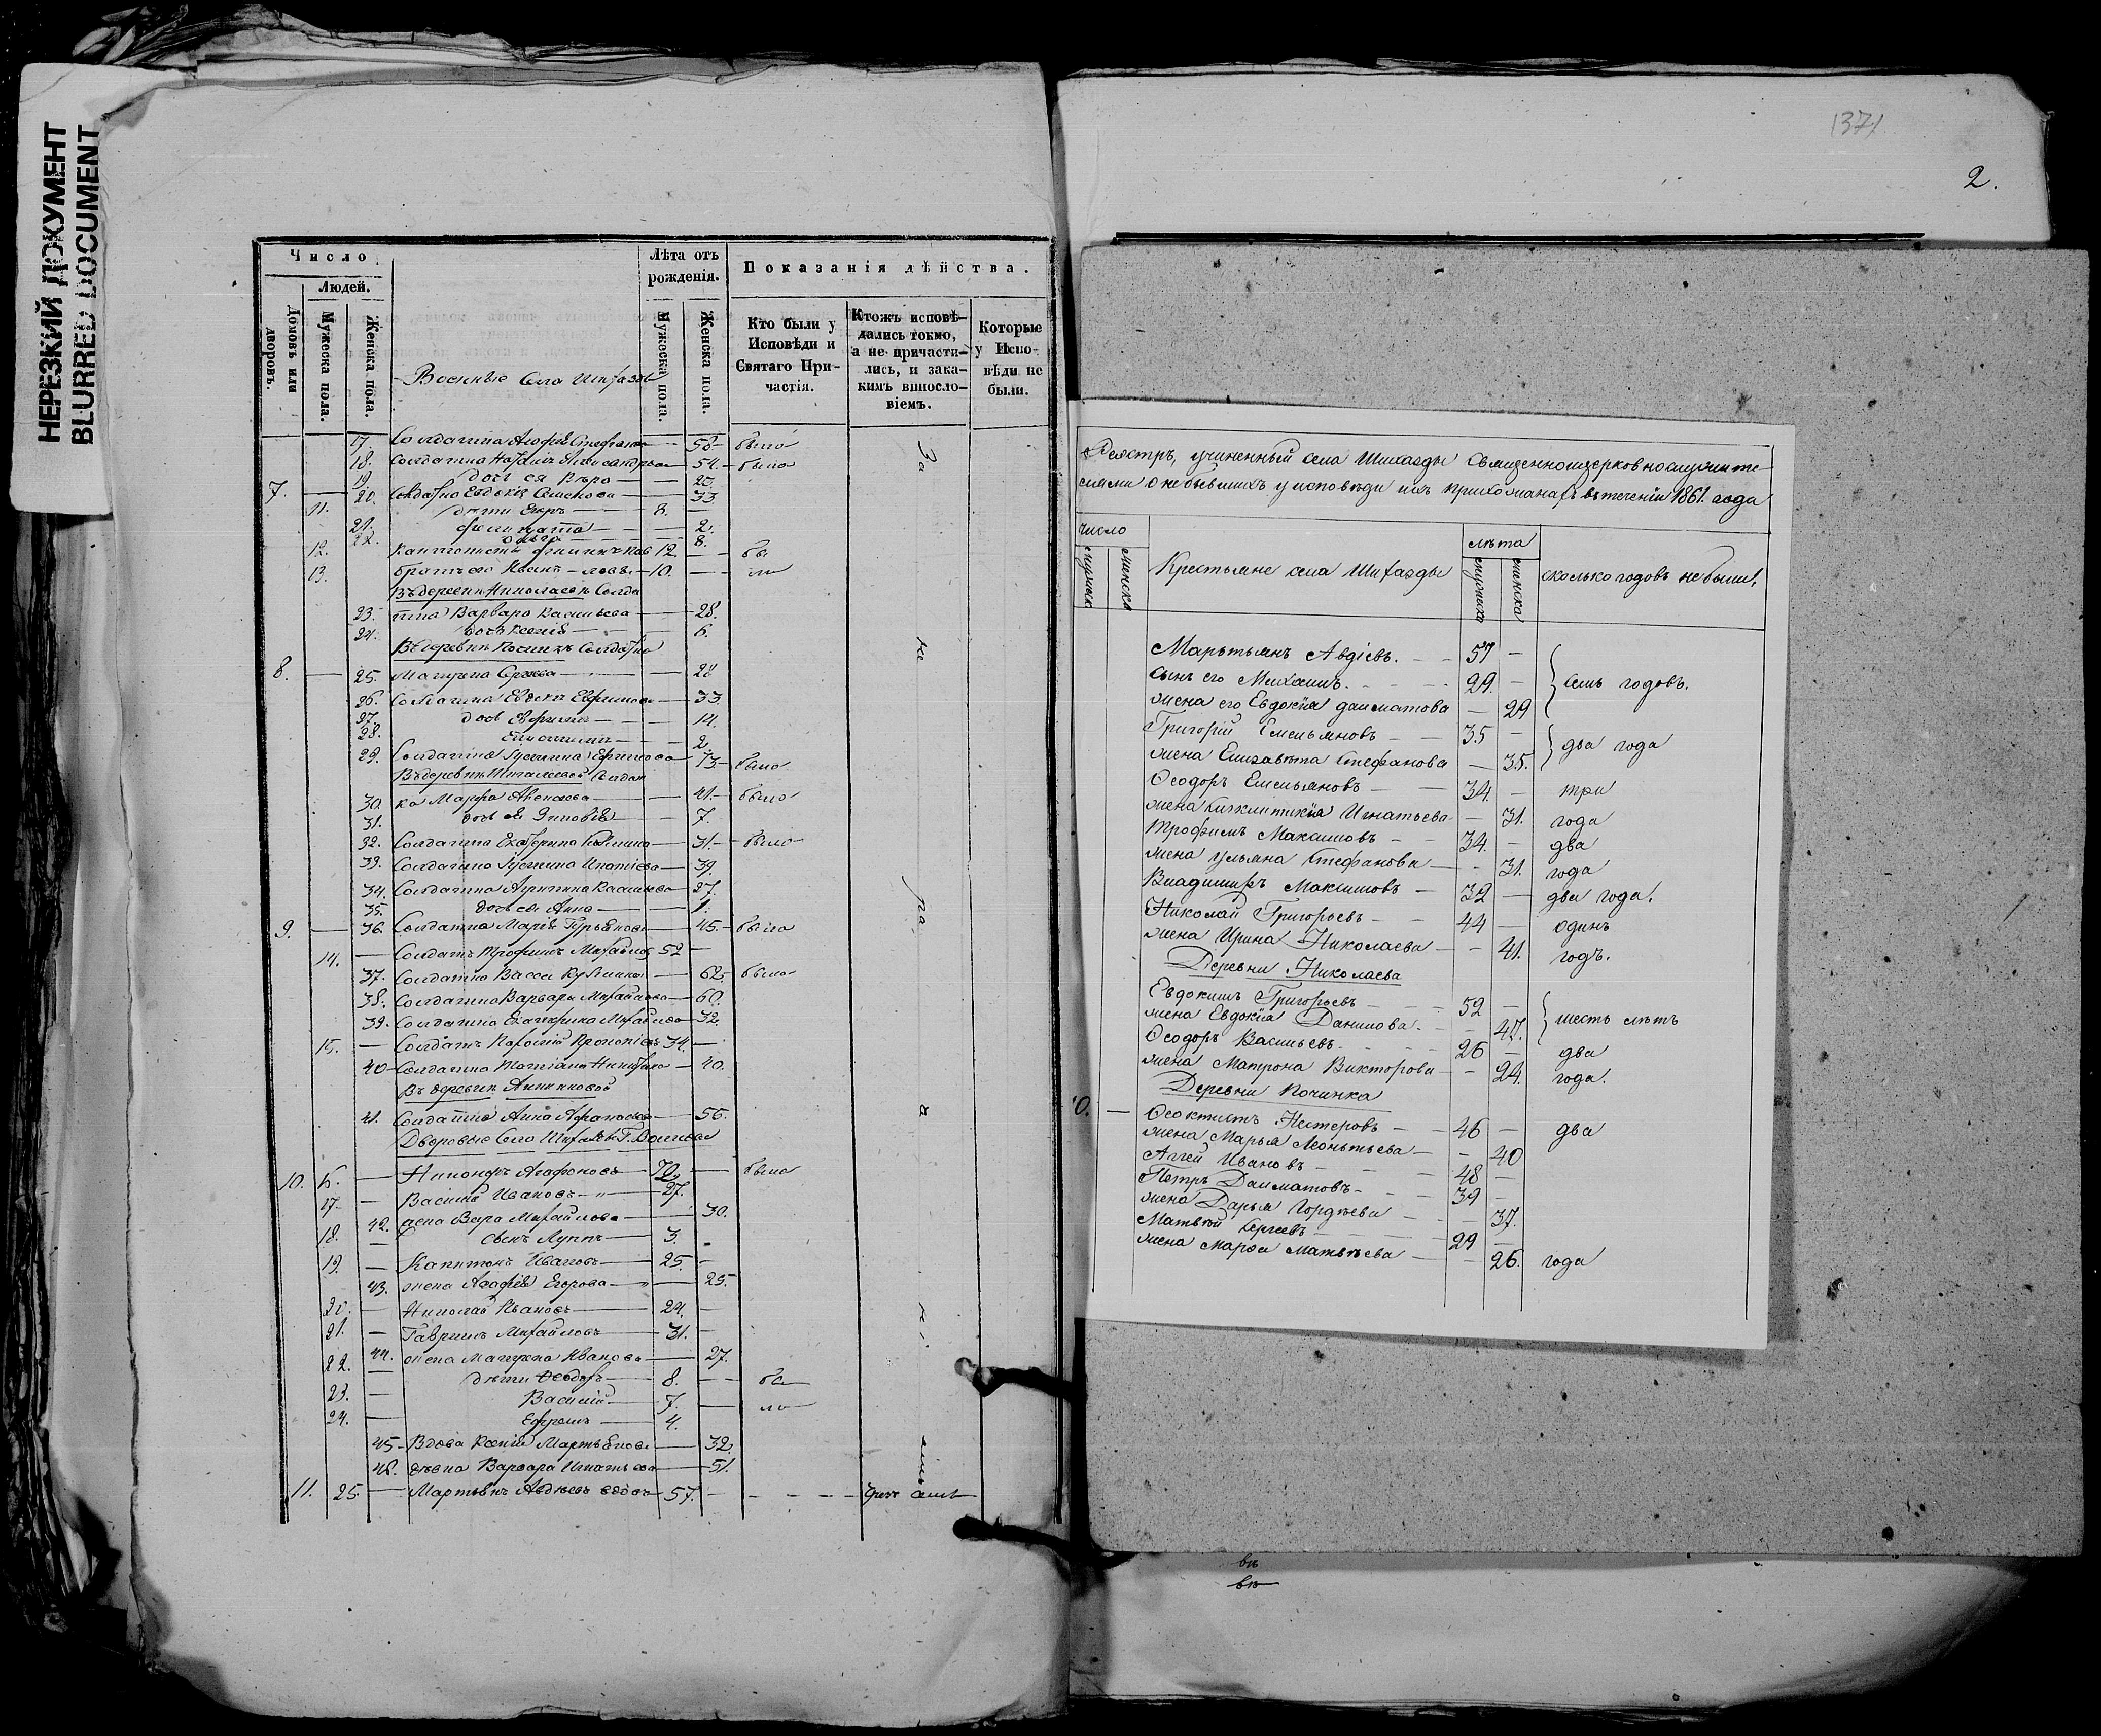 НЕРЕЗКИЙ ДОКУМЕНТ
BLURRED DOCUMENT
Число.
Людей.
Домовъ или дворовъ.
Мужеска пола.
Женска пола.
Военные села Шихазды
Лѣта отъ рожденія.
Мужеска пола.
Женска пола.
Показанія дѣйства.
Кто были у Исповѣди и Святаго Причастія.
Ктожъ исповѣдались токмо, а не причастились, и закакимъ винословіемъ.
Которые у Исповѣди не были.
17. Солдатка Агафія Стефанова — 58 — была
18. Солдатка Наталія Александрова — 54 — была
19. дочь ея Вѣра — 25
7. — 20. Солдатка Евдокія Семенова — 33
11. дѣти Егоръ — 8. —
21. — 2.
22. Ольга — 8.
12. Кантонистъ 12 — бы
13. братъ его Иванъ — 10. — ли
Въ деревни Николаевѣ Солда
23. тка Варвара Васильева — 28.
24. дочь Ксенія — 6.
Въ деревнѣ Починкѣ Солдатка
8. — 25. Матрена — 28
26. Солдатка Евдокія Ефимова — 33
27. дочь — 14.
28. — 2
29. Солдатка Ефимова — 73 — была
Въ деревнѣ Солдат
30. ка Марфа — 41. — была
31. дочь ея Зиновія — 7.
32. Солдатка Екатерина — 31. — была
33. Солдатка Устинья — 39.
34. Солдатка Васильева — 27.
35. дочь ея Анна — 1.
9. — 36. Солдатка Марія — 45. — была
14. — Солдатъ Трофимъ Михайлов 52 —
37. Солдатка Васса — 62 — была
38. Солдатка Варвара Михайлова — 60.
39. Солдатка Екатерина Михайлова — 32.
15. — Солдатъ 34. —
40 — Солдатка Татіана — 40.
Въ деревни Аникиновой
41. Солдатка Анна — 56.
Дворовые Села Шихазды Г.
10. 16. — Никаноръ Агафоновъ — 70. — была
17. — Василій Ивановъ — 27.
42. жена Михайлова — 30.
18. — сынъ Луппъ — 3.
19. — Капитонъ Ивановъ — 25. —
43. жена Агафія Егорова — 25.
20. — Николай Ивановъ — 24. —
21. — Гавріилъ Михайловъ — 31. —
44. жена Матрена Иванова — 27.
22. — дѣти Ѳеодоръ — 8. — бы
23. — Василій — 7. — ли
24. — Ефремъ — 4.
45. — Вдова Ксенія Мартьянова — 32.
46. дѣвка Варвара Игнатьева — 51.
11. 25. — Мартьянъ Авдіевъ вдовъ — 57. —
137/
2.
Реэстръ, учиненный села Шихазды Священноцерковнослужите-
лями о небывшихъ у исповѣди ихъ прихожанахъ въ теченіи 1861. года
число
мужска
женска
Крестьяне села Шихазды
лѣта
мужска
женска
сколько годовъ не были,
Мартьянъ Авдіевъ. — 57 —
сынъ его Михаилъ. — 29. — семь годовъ.
жена его Евдокія Далматова — 29
Григорій Емельяновъ — 35 —
два года
жена Елизавета Стефанова — 35.
Ѳеодоръ Емельяновъ — 34. — три
жена Игнатьева — 31. года
Трофимъ Максимовъ — 34. — два
жена Ульяна Стефанова — 31. года
Владимиръ Максимовъ — 32 — два года.
Николай Григорьевъ — 44 — одинъ
жена Ирина Николаева — 41. годъ.
Деревни Николаева
Евдокимъ Григорьевъ — 52 —
шесть лѣтъ
жена Евдокія Данилова. — 47.
Ѳеодоръ Васильевъ — 26 — два
жена Матрона Викторова — 24. года.
Деревни Починка
0. — Ѳеоктистъ Нестеровъ — 46 — два
жена Марья Леонтьева — 40
Аггей Ивановъ — 48 —
Петръ Далматовъ — 39 —
жена Дарья Гордѣева — 37.
Матвѣй Сергеевъ — 29 —
жена Марфа Матвѣева — 26. года
въ
въ